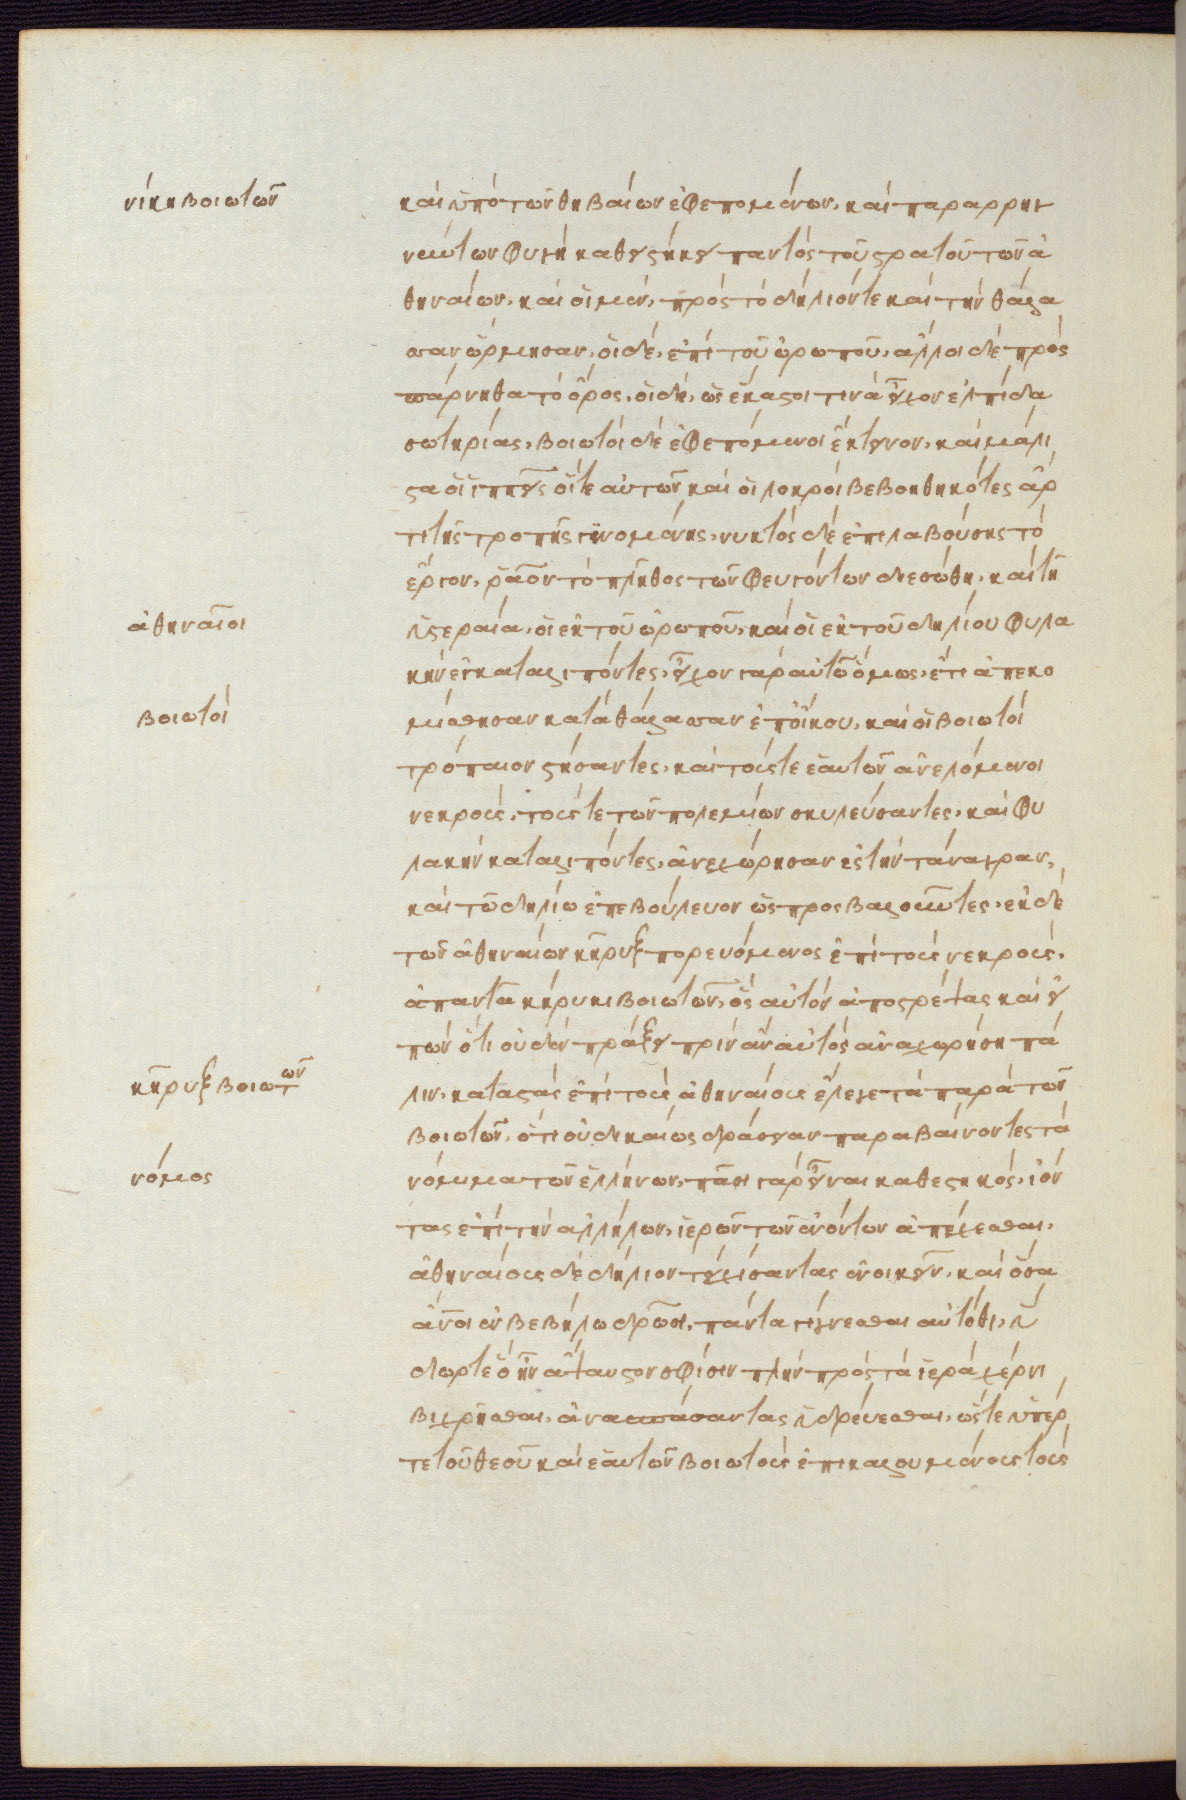 νίκη βοιωτῶν
καὶ ὑπὸ τῶν θηβαίων ἐφεπομένων, καὶ παραρρηγ
νύντων φυγὴ καθειστήκει παντὸς τοῦ στρατοῦ τῶν ἀ
θηναίων, καὶ οἱ μὲν, πρὸς τὸ δήλιόν τε καὶ τὴν θάλα
σσαν ὥρμησαν, οἱ δὲ, ἐπὶ τοῦ ὠρωποῦ, ἄλλοι δὲ πρὸς
πάρνηθα τὸ ὄρος, οἱ δὲ, ὡς ἕκαστοι τινὰ εἶχον ἐλπίδα
σωτηρίας, βοιωτοὶ δὲ ἐφεπόμενοι ἔκτεινον, καὶ μάλι
στα οἱ ἱππεῖς οἵ τε αὐτῶν καὶ οἱ λοκροὶ βεβοηθηκότες ἄρ
τι τῆς τροπῆς γινομένης, νυκτὸς δὲ ἐπιλαβούσης τὸ
ἔργον, ρᾶον τὸ πλῆθος τῶν φευγόντων διεσώθη, καὶ τῆ
ἀθηναῖοι
ὑστεραία, οἱ ἐκ τοῦ ὠρωποῦ, καὶ οἱ ἐκ τοῦ δηλίου φυλα
κὴν ἐγκαταλιπόντες, εἶχον γὰρ αὐτῶ ὅμως, ἔτι ἀπεκο
βοιωτοὶ
μίσθησαν κατὰ θάλασσαν ἐπ' οἴκου, καὶ οἱ βοιωτοὶ
τρόπαιον στήσαντες, καὶ τούς τε ἑαυτῶν ἀνελόμενοι
νεκροὺς, τούς τε τῶν πολεμίων σκυλεύσαντες, καὶ φυ
λακὴν καταλιπόντες, ἀνεχώρησαν ἐς τὴν τάναγραν,
καὶ τῶ δηλίω ἐπεβούλευον ὡς προσβαλοῦντες, ἐκ δὲ
τῶν ἀθηναίων κῆρυξ πορευόμενος ἐπὶ τοὺς νεκροὺς.
ἀπαντᾶ κήρυκι βοιωτῶν, ὃς αὐτὸν ἀποστρέψας καὶ εἰ
πὼν ὅτι οὐδὲν πράξει πρὶν ἂν αὐτὸς ἀναχωρήση πά
κῆρυξ βοιωτῶν
λιν, καταστὰς ἐπὶ τοὺς ἀθηναίους ἔλεγε τὰ παρὰ τῶν
βοιωτῶν, ὅτι οὐ δικαίως δράσειαν παραβαίνοντες τὰ
νόμος
νόμιμα τῶν ἑλλήνων, πᾶσι γὰρ εἶναι καθεστηκὸς, ἰόν
τας ἐπὶ τὴν ἀλλήλων, ἱερῶν τῶν ἐνόντων ἀπέχεσθαι,
ἀθηναίους δὲ δήλιον τειχίσαντας ἐνοικεῖν, καὶ ὅσα
ἄνοι ἐν βεβήλω δρῶσι, πάντα γίγνεσθαι αὐτόθι, ὕ
δωρ τε ὃ ἦν ἄψαυστον σφίσιν πλὴν πρὸς τὰ ἱερὰ χέρνι
βι χρῆσθαι, ἀνασπάσαντας ὑδρεύεσθαι, ὥστε ὑπέρ
τε τοῦ θεοῦ καὶ ἑαυτῶν βοιωτοὺς ἐπικαλουμένους τοὺς